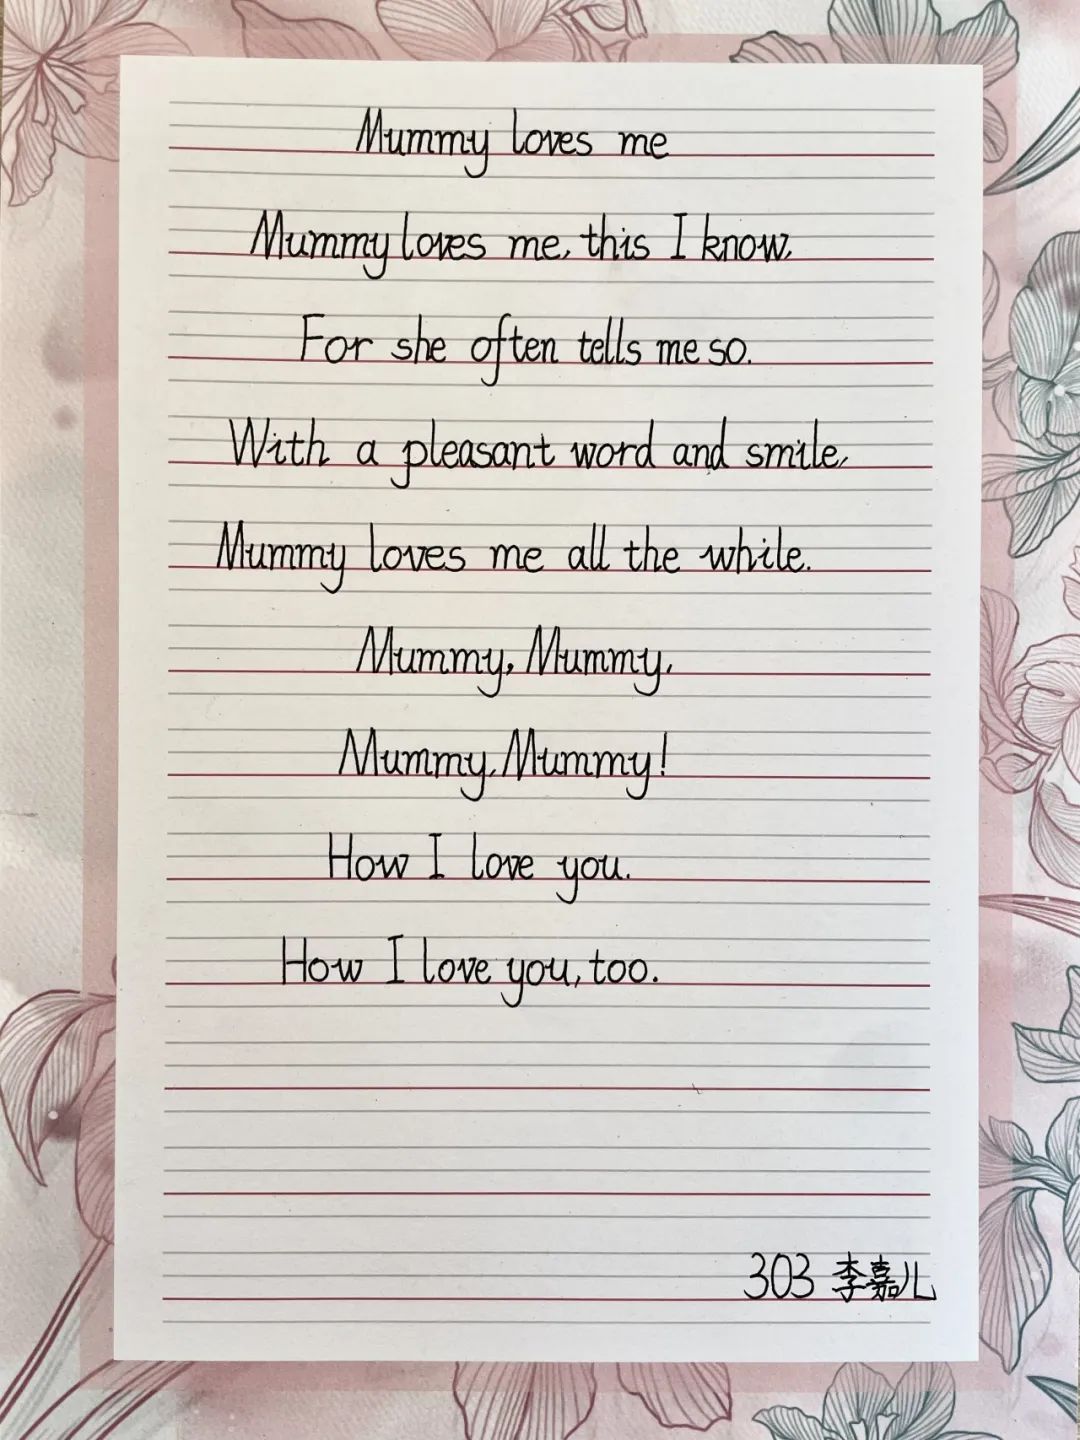 Mummy loves me
Mummy loves me, this I know,
For she often tells me so.
With a pleasant word and smile,
Mummy loves me all the while.
Mummy, Mummy,
Mummy, Mummy!
How I love you.
How I love you, too.
303 李嘉儿